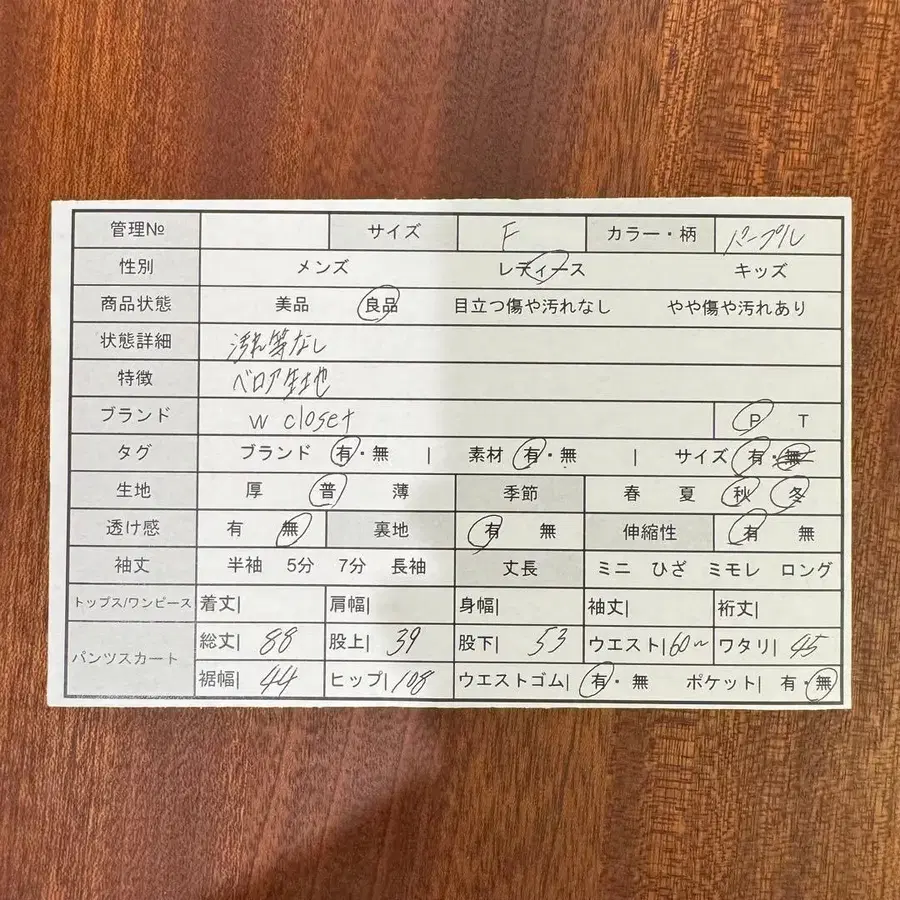 管理№ サイズ F カラー・柄 パープル
性別 メンズ レディース キッズ
商品状態 美品 良品 目立つ傷や汚れなし やや傷や汚れあり
状態詳細 汚れ等なし
特徴 ベロア生地
ブランド w closet P T
タグ ブランド 有・無 | 素材 有・無 | サイズ 有・無
生地 厚 普 薄 季節 春 夏 秋 冬
透け感 有 無 裏地 有 無 伸縮性 有 無
袖丈 半袖 5分 7分 長袖 丈長 ミニ ひざ ミモレ ロング
トップス/ワンピース 着丈| 肩幅| 身幅| 袖丈| 裄丈|
パンツスカート 総丈| 88 股上| 39 股下| 53 ウエスト| 60〜 ワタリ| 45
裾幅| 44 ヒップ| 108 ウエストゴム| 有・無 ポケット| 有・無